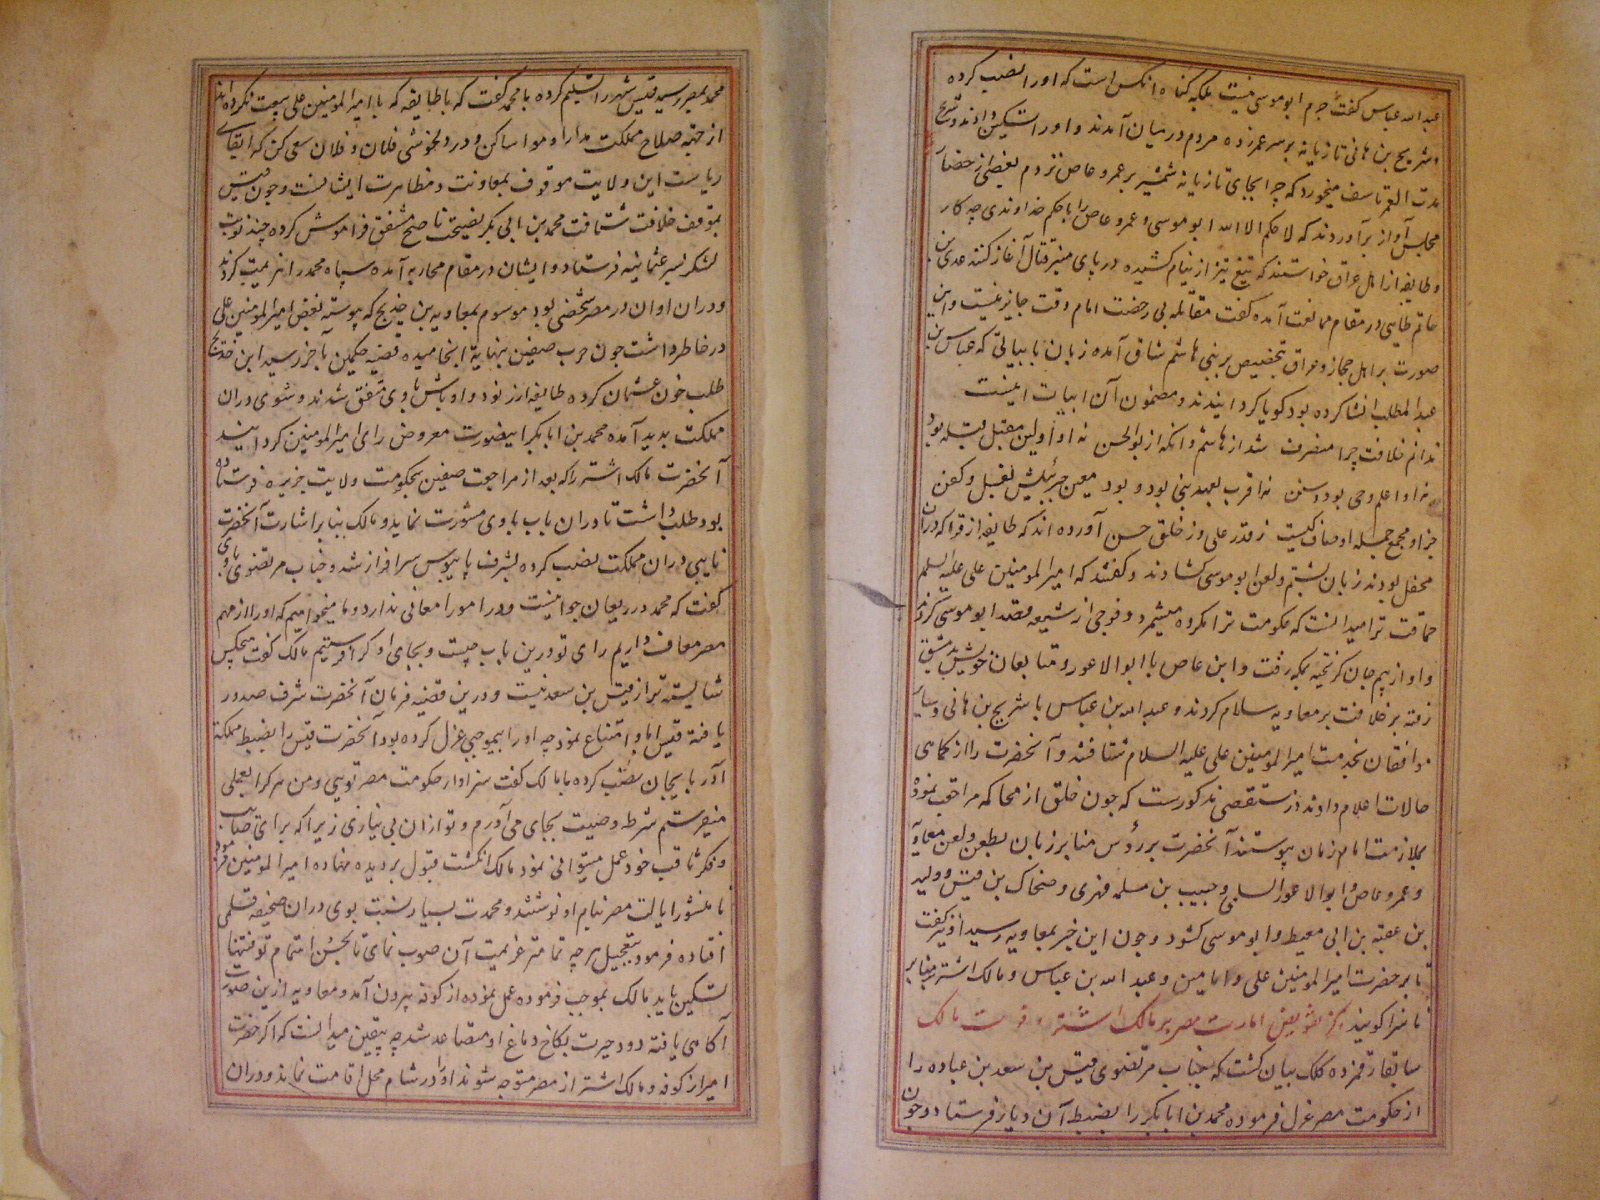 عبدالله عباس گفت جرم ابوموسی نیست بلکه گناه انکس است که او را نصب کرده
و شریح بن هانی تازیانه بر سر عمرو زده مردم در میان آمدند و او را تسکین دادند و شریح
مدت العمر تاسف میخورد که چرا بجای تازیانه شمشیر بر عمرو عاص نزدم بعضی از حضار
مجلس آواز برآوردند که لا حکم الا الله ابوموسی و عمرو عاص را با حکم خداوندی چه کار
و طایفه از اهل عراق خواستند که تیغ تیز از نیام کشیده در پای منبر قتال آغاز کنند عدی بن
حاتم طایی در مقام ممانعت آمده گفت مقاتله بی رخصت امام وقت جایز نیست و این
صورت بر اهل حجاز و عراق بتخصیص بر بنی هاشم شاق آمده زبان با بیاتی که عباس بن
عبدالمطلب انشا کرده بود کویا کردانیدند و مضمون آن ابیات اینست
ندانم خلافت چرا منصرف شد از هاشم و انکه از بوالحسن نه او اولین مقبل قبله بود
نه او اعلم وحی بود و سنن نه اقرب بعهد نبی بود و بود معین جبرئیلش بغسل و کفن
جز او مجمع جمله اوصاف کیست ز قدر علی وز خلق حسن آورده اند که طایفه از قرا که دران
محفل بودند زبان بشتم و لعن ابوموسی کشادند و گفتند که امیرالمومنین علی علیه السلم
حماقت ترا میدانست که حکومت ترا مکروه میشمرد و فوجی از شیعه قصد ابوموسی کردند
و او از بیم جان کریخته بمکه رفت و ابن عاص با ابوالاعور و متابعان خویش بدمشق
رفته بر خلافت بر معاویه سلام کردند و عبدالله بن عباس با شریح بن هانی و سایر
موافقان بخدمت امیرالمومنین علی علیه السلام شتافتند و آنحضرت را از کماهی
حالات اعلام دادند در مستقصی مذکورست که چون خلق از محاکمه مراجعت نموده
بملازمت امام زمان پیوستند آنحضرت بر رؤس منابر زبان بطعن و لعن معاویه
و عمرو عاص و ابوالاعور السلمی و حبیب بن مسلمه فهری و ضحاک بن قیس و ولید
بن عقبه بن ابی معیط و ابوموسی کشود و چون این خبر بمعاویه رسید او نیز گفت
تا بر حضرت امیرالمومنین علی و امامین و عبدالله بن عباس و مالک اشتر بر منابر
ناسزا کویند ذکر تفویض امارت مصر بر مالک اشتر و فوت مالک
سابقا رقمزده کلک بیان کشت که جناب مرتضوی قیس بن سعد بن عباده را
از حکومت مصر عزل فرموده محمد بن ابابکر را بضبط آن دیار فرستاد و چون
محمد بمصر رسید قیس شهر را تسلیم کرده با محمد گفت که با طایفه که با امیرالمومنین علی بیعت نکرده اند
از جهة صلاح مملکت مدارا و مواسا کن و در دلخوشی فلان و فلان سعی کن که ابقای
ریاست این ولایت موقوف بمعاونت و مظاهرت ایشانست و چون قیس
بموقف خلافت شتافت محمد بن ابی بکر نصیحت ناصح مشفق فراموش کرده چند نوبت
لشکر بسر عثمانیه فرستاد و ایشان در مقام محاربه آمده سپاه محمد را هزیمت کردند
و دران اوان در مصر شخصی بود موسوم بمعاویه بن خدیج که پیوسته بغض امیرالمومنین علی
در خاطر داشت چون حرب صفین بنهایة انجامیده قضیه حکمین بآخر رسید ابن خدیج
طلب خون عثمان کرده طایفه از نود و اوباش باوی متفق شدند و شوری دران
مملکت پدید آمده محمد بن ابابکر اینصورت معروض رای امیرالمومنین کردانید
آنحضرت مالک اشتر را که بعد از مراجعت صفین بحکومت ولایت جزیره فرستاده
بود طلب داشت تا دران باب باوی مشورت نماید و مالک بنا بر اشارت آنحضرت
نایبی دران مملکت نصب کرده بشرف پایبوس سرافراز شد و جناب مرتضوی باوی
گفت که محمد در ریعان جوانیست و در امور امعانی ندارد و ما میخواهیم که او را از مهم
مصر معاف داریم رای تو درین باب چیست و بجای او کرا فرستیم مالک گفت هیچکس
شایسته تر از قیس بن سعد نیست و درین قضیه فرمان آنحضرت شرف صدور
یافته قیس ابا و امتناع نمود چه او را بیموجبی عزل کرده بود آنحضرت قیس را بضبط مملکة
آذربایجان نصب کرده با مالک گفت سزاوار حکومت مصر تویی و من هر کرا بعملی
میفرستم شرط وصیت بجای می آورم و تو ازان بی نیازی زیرا که برای صایب
و فکر ثاقب خود عمل میتوانی نمود مالک انکشت قبول بر دیده نهاده امیرالمومنین فرمود
تا منشور ایالت مصر بنام او نوشتند و محمدت بسیار نسبت بوی دران صحیفه قلمی
افتاده فرمود بتعجیل هرچه تمامتر عزیمت آن صوب نمای تا بحسن اهتمام تو فتنها
تسکین یابد مالک بموجب فرموده عمل نموده از کوفه بیرون آمد و معاویه ازین صورت
آکاهی یافته دود حیرت بکاخ دماغ او متصاعد شد چه بیقین میدانست که اکر حضرت
امیر از کوفه و مالک اشتر از مصر متوجه شوند او را در شام محل اقامت نماند و دران